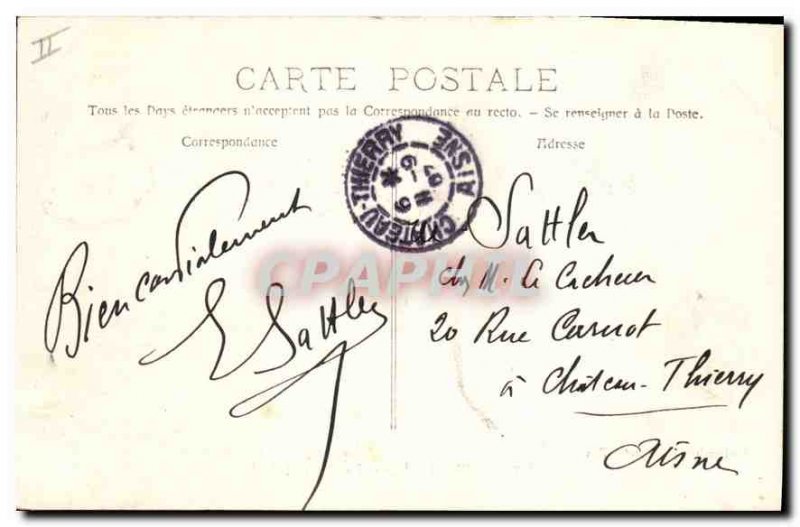 II
CARTE POSTALE
Tous les Pays étrangers n'acceptent pas la Correspondance au recto. - Se renseigner à la Poste.
Correspondance
Adresse
CHATEAU-THIERRY
AISNE
Bien cordialement
E Sattler
Sattler
chez M. Le Cacheux
20 Rue Carnot
à Château-Thierry
Aisne
CPAPHIL